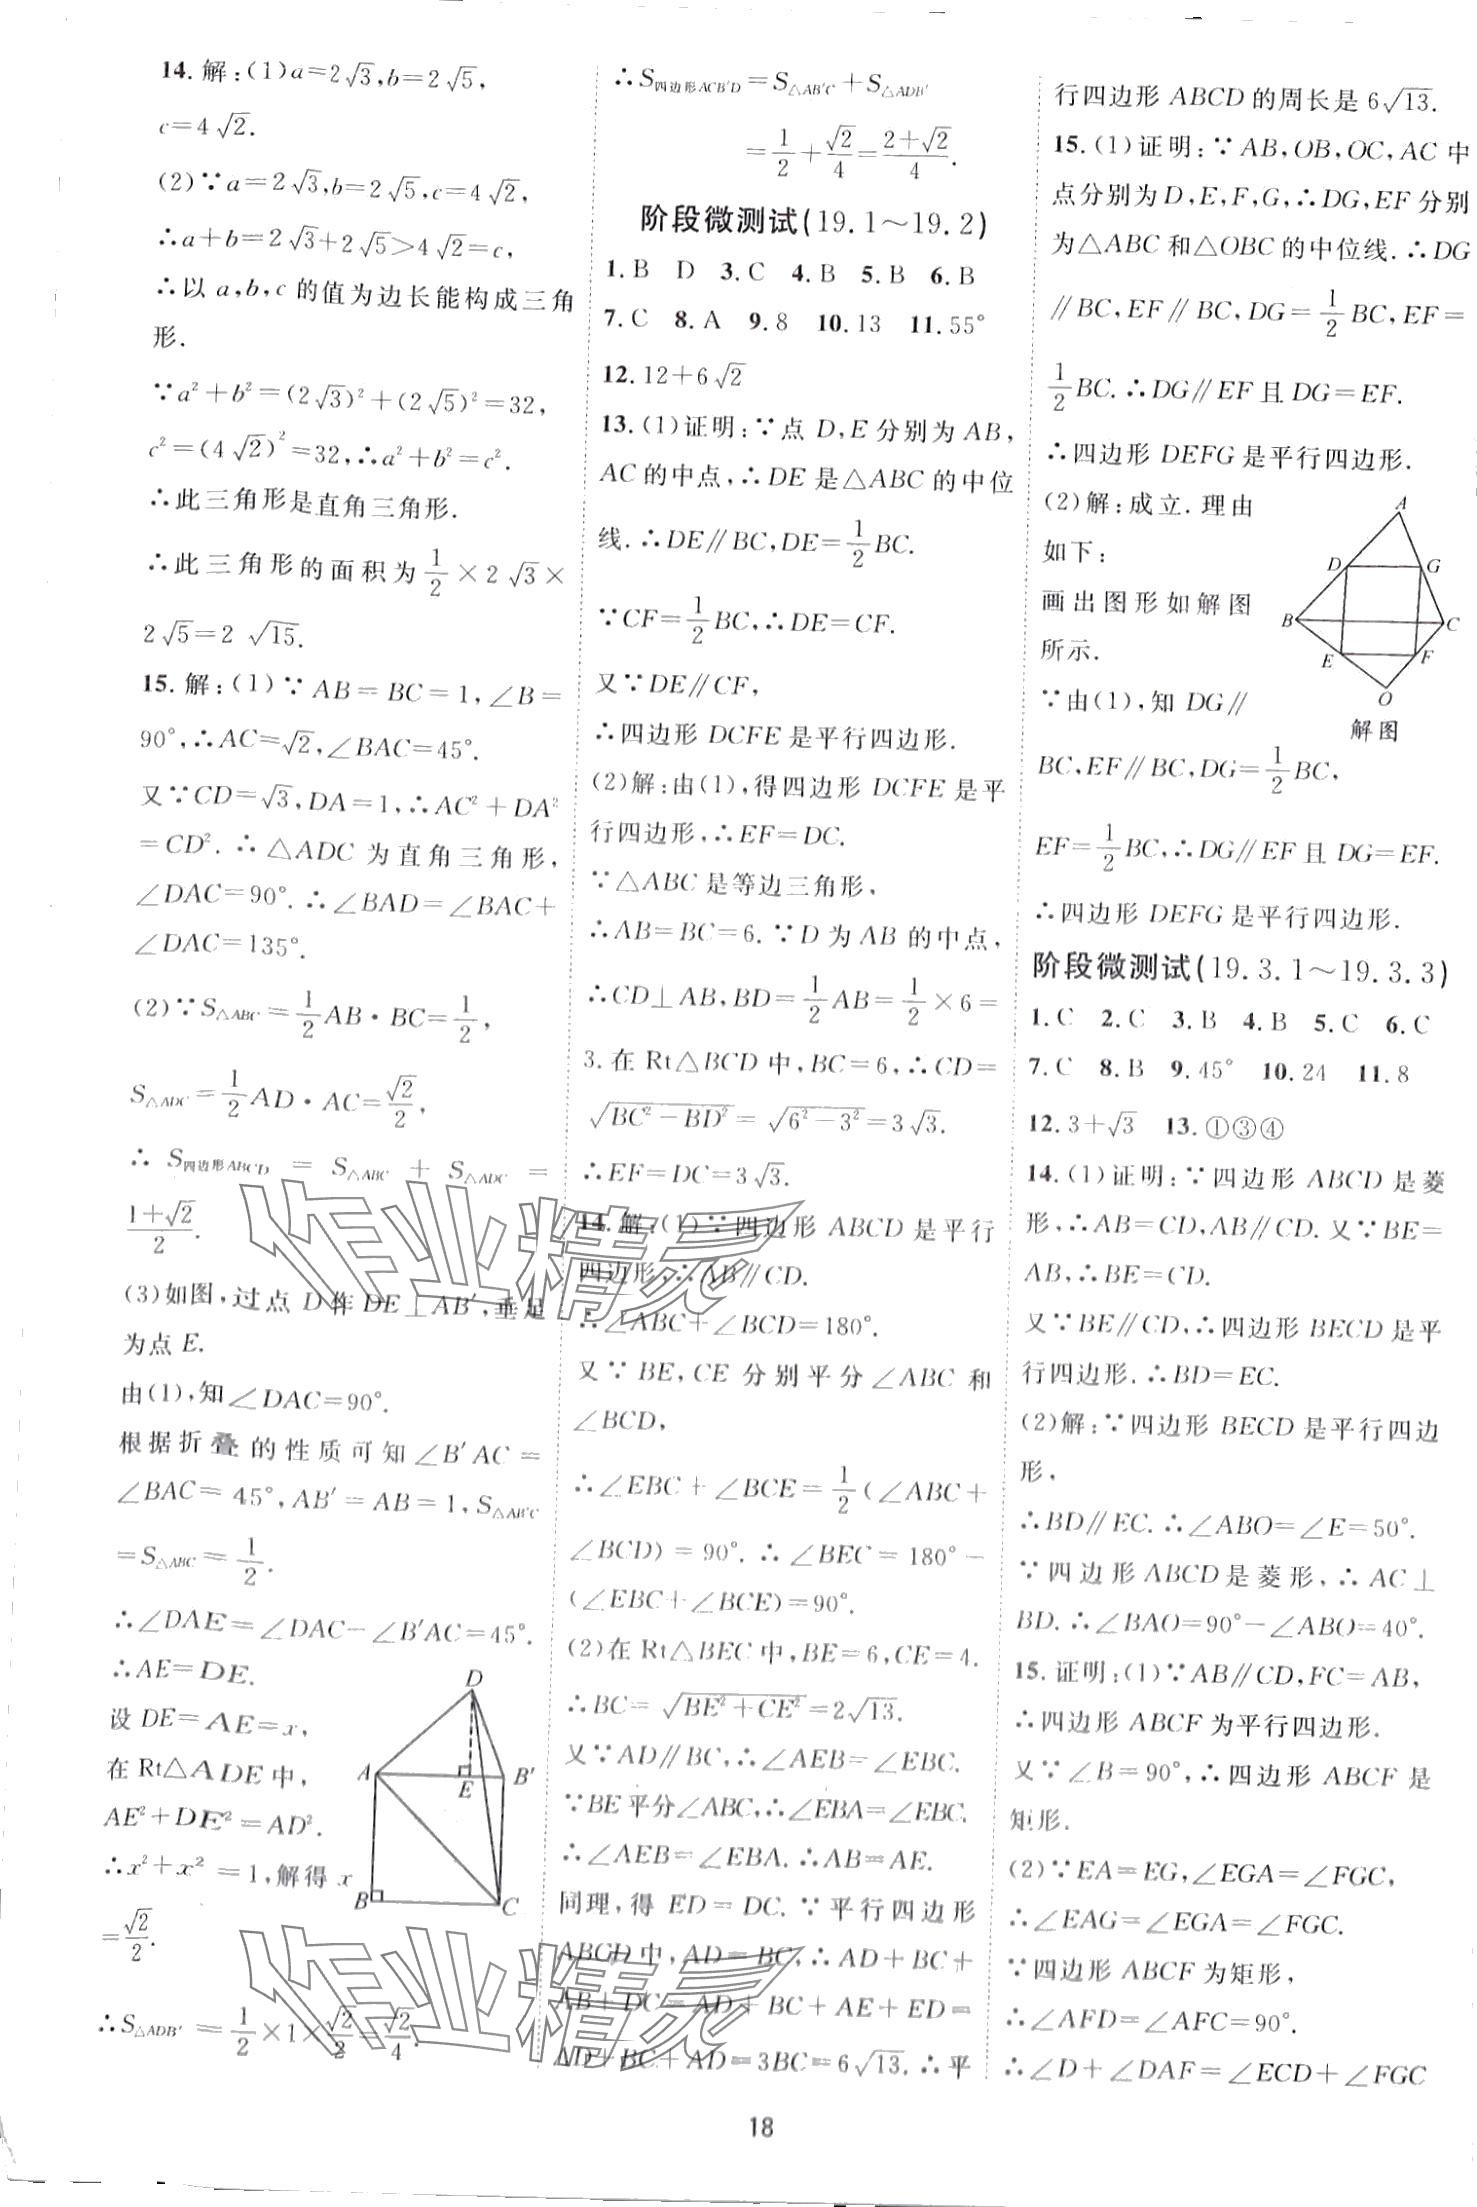 14. 解:(1)a=2√3,b=2√5,
c=4√2.
(2)∵a=2√3,b=2√5,c=4√2,
∴a+b=2√3+2√5>4√2=c,
∴以 a,b,c 的值为边长能构成三角
形.
∵a²+b²=(2√3)²+(2√5)²=32,
c²=(4√2)²=32,∴a²+b²=c².
∴此三角形是直角三角形.
∴此三角形的面积为 1/2×2√3×
2√5=2√15.
15. 解:(1)∵AB=BC=1,∠B=
90°,∴AC=√2,∠BAC=45°.
又∵CD=√3,DA=1,∴AC²+DA²
=CD².∴△ADC 为直角三角形,
∠DAC=90°.∴∠BAD=∠BAC+
∠DAC=135°.
(2)∵S△ABC=1/2AB·BC=1/2,
S△ADC=1/2AD·AC=√2/2,
∴S四边形ABCD=S△ABC+S△ADC=
(1+√2)/2.
(3)如图,过点 D 作 DE⊥AB′,垂足
为点 E.
由(1),知∠DAC=90°.
根据折叠的性质可知∠B′AC=
∠BAC=45°,AB′=AB=1,S△AB′C
=S△ABC=1/2.
∴∠DAE=∠DAC-∠B′AC=45°.
∴AE=DE.
设 DE=AE=x,
在 Rt△ADE 中,
AE²+DE²=AD².
∴x²+x²=1,解得 x
=√2/2.
D
A
E
B′
B
C
∴S△ADB′=1/2×1×√2/2=√2/4.
∴S四边形ACB′D=S△AB′C+S△ADB′
=1/2+√2/4=(2+√2)/4.
阶段微测试(19.1～19.2)
1. B D 3. C 4. B 5. B 6. B
7. C 8. A 9. 8 10. 13 11. 55°
12. 12+6√2
13. (1)证明:∵点 D,E 分别为 AB,
AC 的中点,∴DE 是△ABC 的中位
线.∴DE∥BC,DE=1/2BC.
∵CF=1/2BC,∴DE=CF.
又∵DE∥CF,
∴四边形 DCFE 是平行四边形.
(2)解:由(1),得四边形 DCFE 是平
行四边形,∴EF=DC.
∵△ABC 是等边三角形,
∴AB=BC=6.∵D 为 AB 的中点,
∴CD⊥AB,BD=1/2AB=1/2×6=
3. 在 Rt△BCD 中,BC=6,∴CD=
√(BC²-BD²)=√(6²-3²)=3√3.
∴EF=DC=3√3.
14. 解:(1)∵四边形 ABCD 是平行
四边形,∴AB∥CD.
∴∠ABC+∠BCD=180°.
又∵BE,CE 分别平分∠ABC 和
∠BCD,
∴∠EBC+∠BCE=1/2(∠ABC+
∠BCD)=90°.∴∠BEC=180°-
(∠EBC+∠BCE)=90°.
(2)在 Rt△BEC 中,BE=6,CE=4.
∴BC=√(BE²+CE²)=2√13.
又∵AD∥BC,∴∠AEB=∠EBC.
∵BE 平分∠ABC,∴∠EBA=∠EBC.
∴∠AEB=∠EBA.∴AB=AE.
同理,得 ED=DC.∵平行四边形
ABCD 中,AD=BC,∴AD+BC+
AB+DC=AD+BC+AE+ED=
AD+BC+AD=3BC=6√13.∴平
行四边形 ABCD 的周长是 6√13.
15. (1)证明:∵AB,OB,OC,AC 中
点分别为 D,E,F,G,∴DG,EF 分别
为△ABC 和△OBC 的中位线.∴DG
∥BC,EF∥BC,DG=1/2BC,EF=
1/2BC.∴DG∥EF 且 DG=EF.
∴四边形 DEFG 是平行四边形.
(2)解:成立.理由
如下:
画出图形如解图
所示.
∵由(1),知 DG∥
A
D
G
B
C
E
F
O
解图
BC,EF∥BC,DG=1/2BC,
EF=1/2BC,∴DG∥EF 且 DG=EF.
∴四边形 DEFG 是平行四边形.
阶段微测试(19.3.1～19.3.3)
1. C 2. C 3. B 4. B 5. C 6. C
7. C 8. B 9. 45° 10. 24 11. 8
12. 3+√3 13. ①③④
14. (1)证明:∵四边形 ABCD 是菱
形,∴AB=CD,AB∥CD.又∵BE=
AB,∴BE=CD.
又∵BE∥CD,∴四边形 BECD 是平
行四边形.∴BD=EC.
(2)解:∵四边形 BECD 是平行四边
形,
∴BD∥EC.∴∠ABO=∠E=50°.
∵四边形 ABCD 是菱形,∴AC⊥
BD.∴∠BAO=90°-∠ABO=40°.
15. 证明:(1)∵AB∥CD,FC=AB,
∴四边形 ABCF 为平行四边形.
又∵∠B=90°,∴四边形 ABCF 是
矩形.
(2)∵EA=EG,∠EGA=∠FGC,
∴∠EAG=∠EGA=∠FGC.
∵四边形 ABCF 为矩形,
∴∠AFD=∠AFC=90°.
∴∠D+∠DAF=∠ECD+∠FGC
作业精灵
作业精灵
18